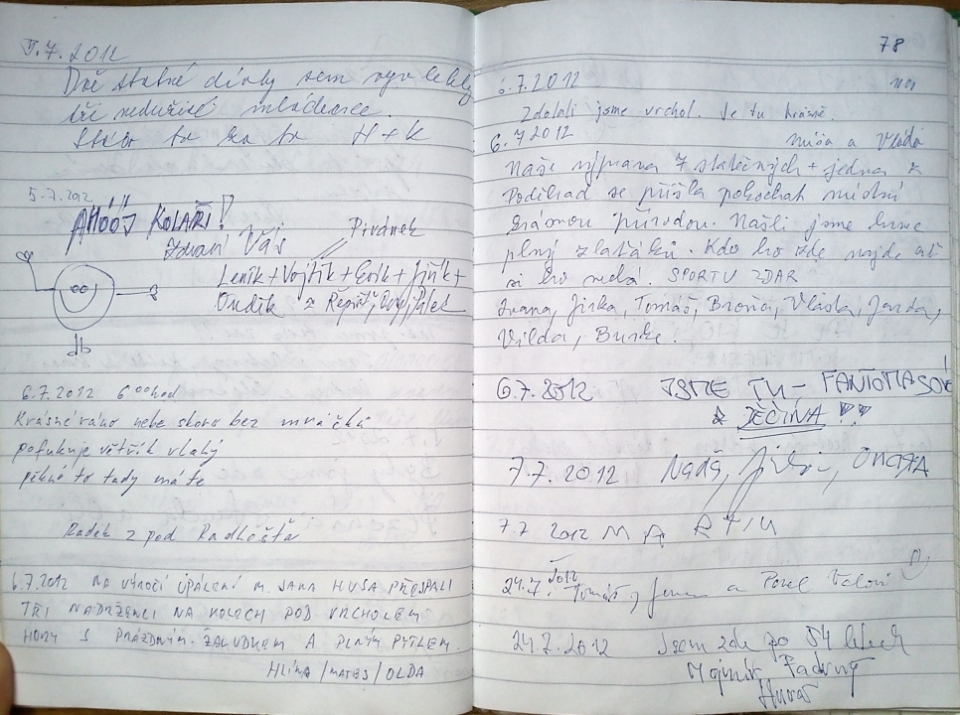 5.7.2012
Dvě statné dívky sem vyvlekly
tři neduživé mládence.
Stálo to za to H+K
5.7.2012
AHÓÓJ KOLAŘI!
Zdraví Vás
Pivánek
Leník+Vojtík+Erik+Jiřík+
Ondík z Řepiště,
6.7.2012 6⁰⁰ hod
Krásné ráno nebe skoro bez mráčků
pofukuje větřík vlahý
pěkné to tady máte
Radek z pod Radhoště
6.7.2012 NA VÝROČÍ UPÁLENÍ M. JANA HUSA PŘESPALI
TŘI NADRŽENCI NA KOLECH POD VRCHOLEM
HORY S PRÁZDNÝM ŽALUDKEM A PLNÝM PYTLEM.
HLÍMA/MATES/OLDA
78
6.7.2012
Zdolali jsme vrchol. Je tu krásně.
Míša a Vláďa
6.7.2012
Naše výprava 7 statečných + jedna z
Poděbrad se přišla pokochat místní
krásnou přírodou. Našli jsme hrnec
plný zlaťáků. Kdo ho zde najde ať
si ho nechá. SPORTU ZDAR
Ivana, Jirka, Tomáš, Broňa, Vlasta, Jarda,
Vilda,
6.7.2012 JSME TU - FANTOMASOVÉ
Z JEČINA!!
7.7.2012 Naďa, Jiří, ONDRA
7.7 2012 MARTIN
24.7. 2012 Tomáš, a Pavel
24.7.2012 Jsem zde po 54 letech